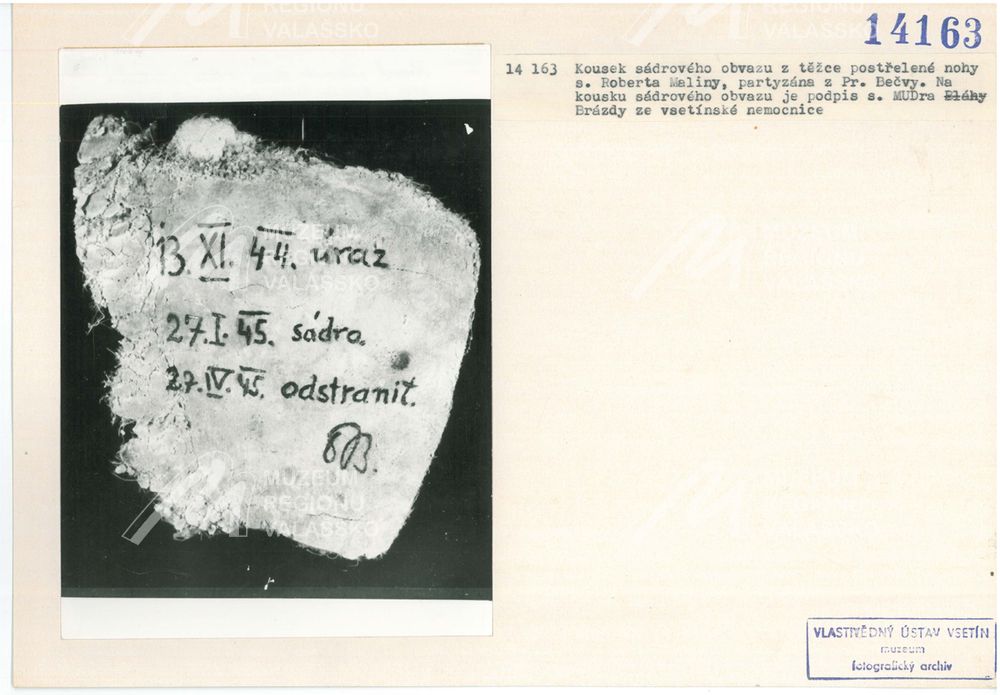 14163
14 163 Kousek sádrového obvazu z těžce postřelené nohy
s. Roberta Maliny, partyzána z Pr. Bečvy. Na
kousku sádrového obvazu je podpis s. MUDra Bláhy
Brázdy ze vsetínské nemocnice
13. XI. 44. úraz
27. I. 45. sádra.
27. IV. 45. odstranit.
MUZEUM
REGIONU
VALAŠSKO
VLASTIVĚDNÝ ÚSTAV VSETÍN
muzeum
fotografický archiv